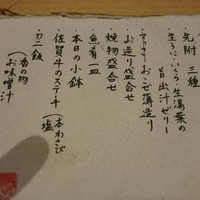 ・先附 三種
生うに・いくら・生湯葉の
旨出汁ジュリー
おこぜ薄造り
・お造り盛合せ
・焼物盛合せ
・魚肴一皿
・本日の小鉢
・佐賀牛のステーキ(本わさび
塩
・カニ飯
(香の物
お味噌汁